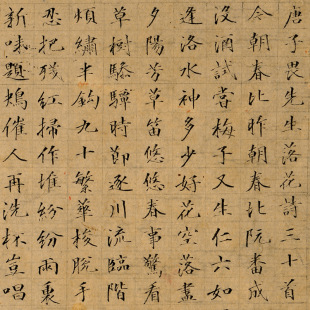 唐子畏先生落花詩三十首
今朝春比昨朝春北阮番成
沒酒試嘗梅子又生仁六如
逢洛水神多少好花空落盡
夕陽芳草笛悠悠春事驚看
草樹時節逐川流臨階
煩繡半鈎九十繁華梭脫手
忍把殘紅掃作堆紛紛雨裏
新味題催人再洗杯豈唱